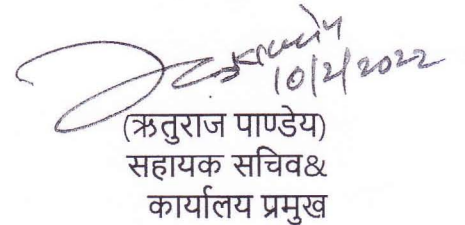 10/2/2022
(ऋतुराज पाण्डेय)
सहायक सचिव&
कार्यालय प्रमुख